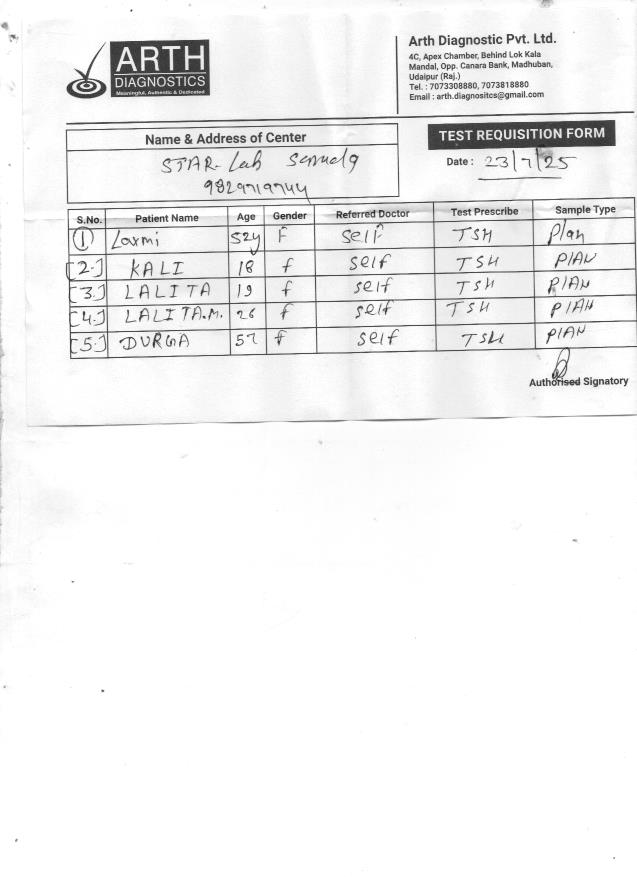 ARTH
DIAGNOSTICS
Meaningful, Authentic & Dedicated
Arth Diagnostic Pvt. Ltd.
4C, Apex Chamber, Behind Lok Kala
Mandal, Opp. Canara Bank, Madhuban,
Udaipur (Raj.)
Tel. : 7073308880, 7073818880
Email : arth.diagnositcs@gmail.com
Name & Address of Center
STAR-Lab
9829719744
TEST REQUISITION FORM
Date : 23/7/25
S.No. Patient Name Age Gender Referred Doctor Test Prescribe Sample Type
1 Laxmi 52y F Self TSH Plan
[2.] KALI 18 f self TSH PlAN
[3.] LALITA 19 f self TSH PlAN
[4.] LALITA.M. 26 f self TSH PlAN
[5.] DURGA 57 f self TSH PlAN
Authorised Signatory